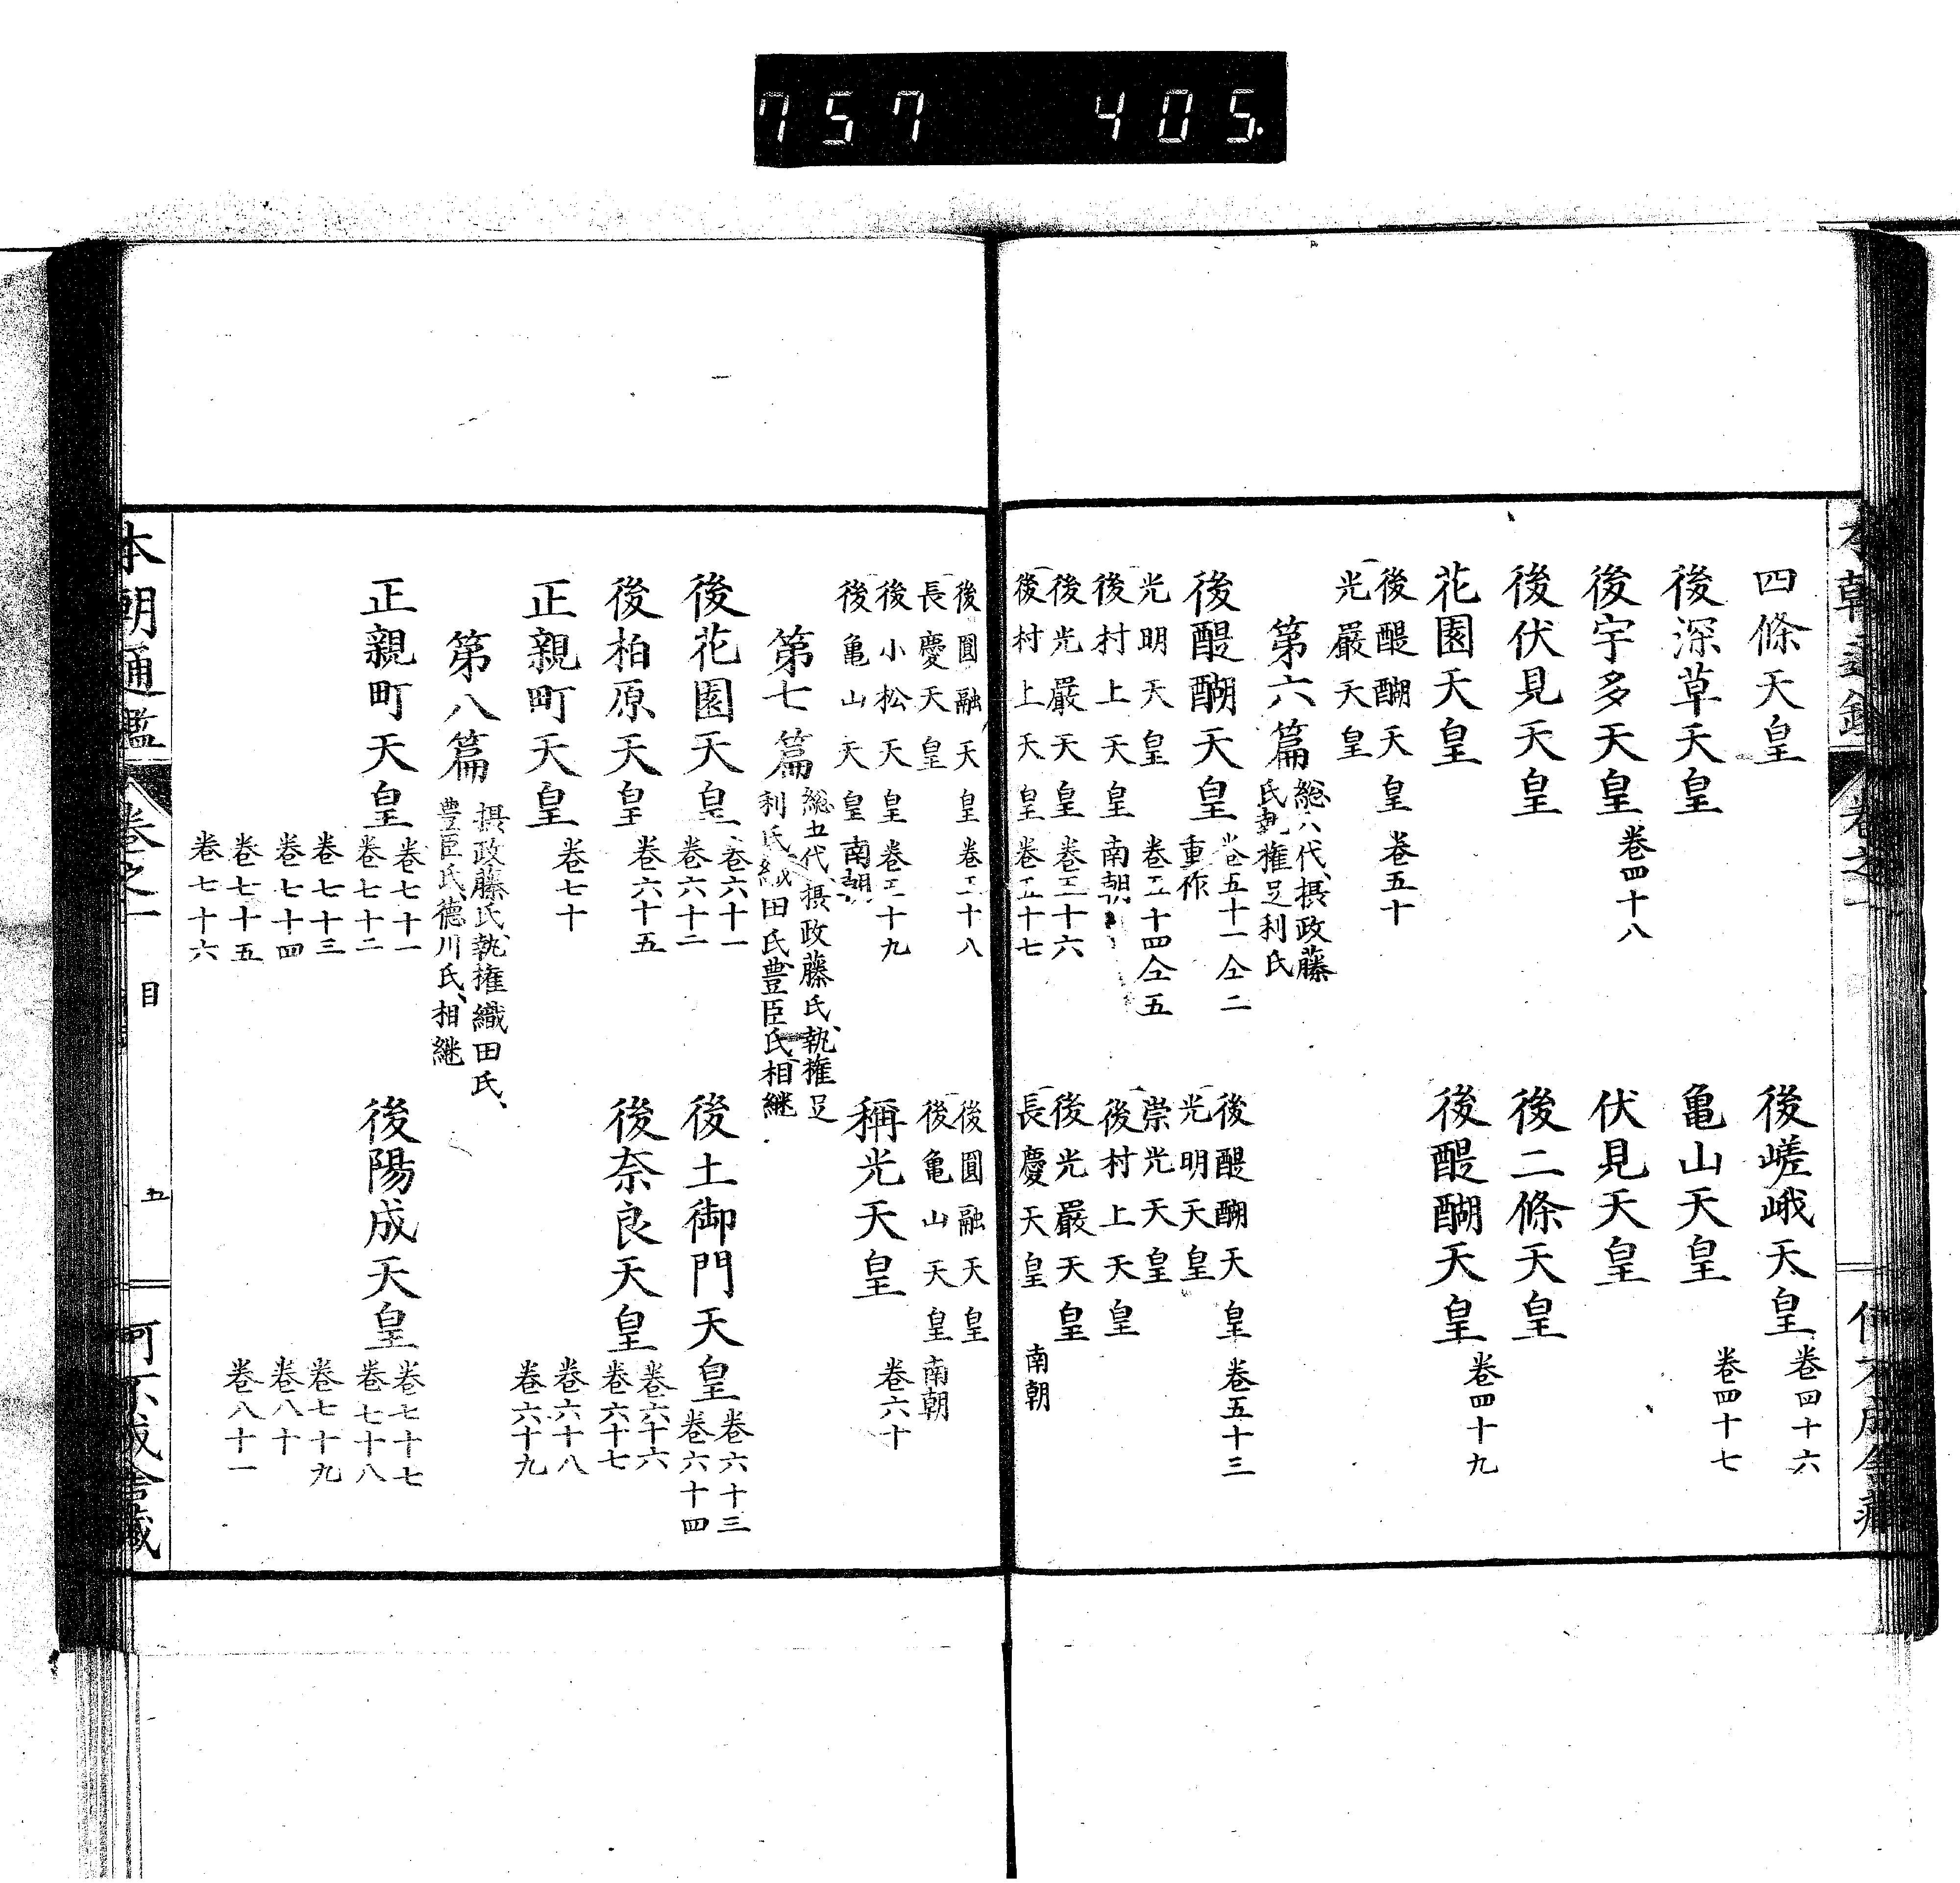 757 405.
四條天皇
後嵯峨天皇 卷四十六
後深草天皇
亀山天皇 卷四十七
後宇多天皇 卷四十八
伏見天皇
後伏見天皇
後二條天皇
花園天皇
後醍醐天皇 卷四十九
後醍醐天皇 卷五十
光嚴天皇
第六篇 総八代、摂政藤
氏執権足利氏
後醍醐天皇 卷五十一仝二
重作
後醍醐天皇 卷五十三
光明天皇
光明天皇 卷五十四仝五
崇光天皇
後村上天皇 南朝
後村上天皇
後光嚴天皇 卷五十六
後光嚴天皇
後村上天皇 卷五十七
長慶天皇 南朝
後圓融天皇 卷五十八
後圓融天皇
長慶天皇
後亀山天皇 南朝
後小松天皇 卷五十九
後亀山天皇 南朝
稱光天皇 卷六十
第七篇 総五代、摂政藤氏、執権足
利氏織田氏豊臣氏相継
後花園天皇 卷六十一
卷六十二
後土御門天皇 卷六十三
卷六十四
後柏原天皇 卷六十五
後奈良天皇 卷六十六
卷六十七
卷六十八
卷六十九
正親町天皇 卷七十
第八篇 摂政藤氏、執権織田氏、
豊臣氏、徳川氏、相継
正親町天皇 卷七十一
卷七十二
卷七十三
卷七十四
卷七十五
卷七十六
後陽成天皇 卷七十七
卷七十八
卷七十九
卷八十
卷八十一
本朝通鑑 卷之一 目 五